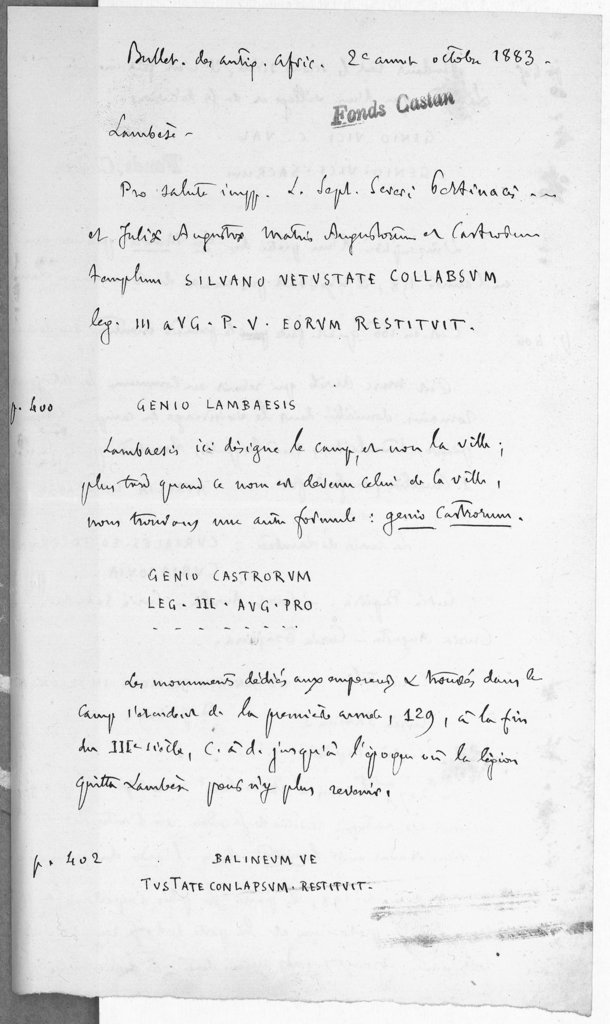 Bullet. des antiq. afric. 2e année octobre 1883 -
Fonds Castan
Lambèse -
Pro salute impp. L. Sept. Severi Pertinacis
et Juliæ Augustæ Matris Augustorum et Castrorum
templum SILVANO VETVSTATE COLLABSVM
leg. III AVG. P. V. EORVM RESTITVIT.
p. 400 GENIO LAMBAESIS
Lambaesis ici désigne le camp, et non la ville ;
plus tard quand ce nom est devenu celui de la ville,
nous trouvons une autre formule : genio Castrorum.
GENIO CASTRORVM
LEG. III. AVG. PRO
- - - - - - - - -
Les monuments dédiés aux empereurs & trouvés dans le
camp s'étendent de la première année, 129, à la fin
du IIIe siècle, c. à d. jusqu'à l'époque où la légion
quitta Lambèse pour n'y plus revenir.
p. 402 BALINEVM VE
TVSTATE CONLAPSVM. RESTITVIT -